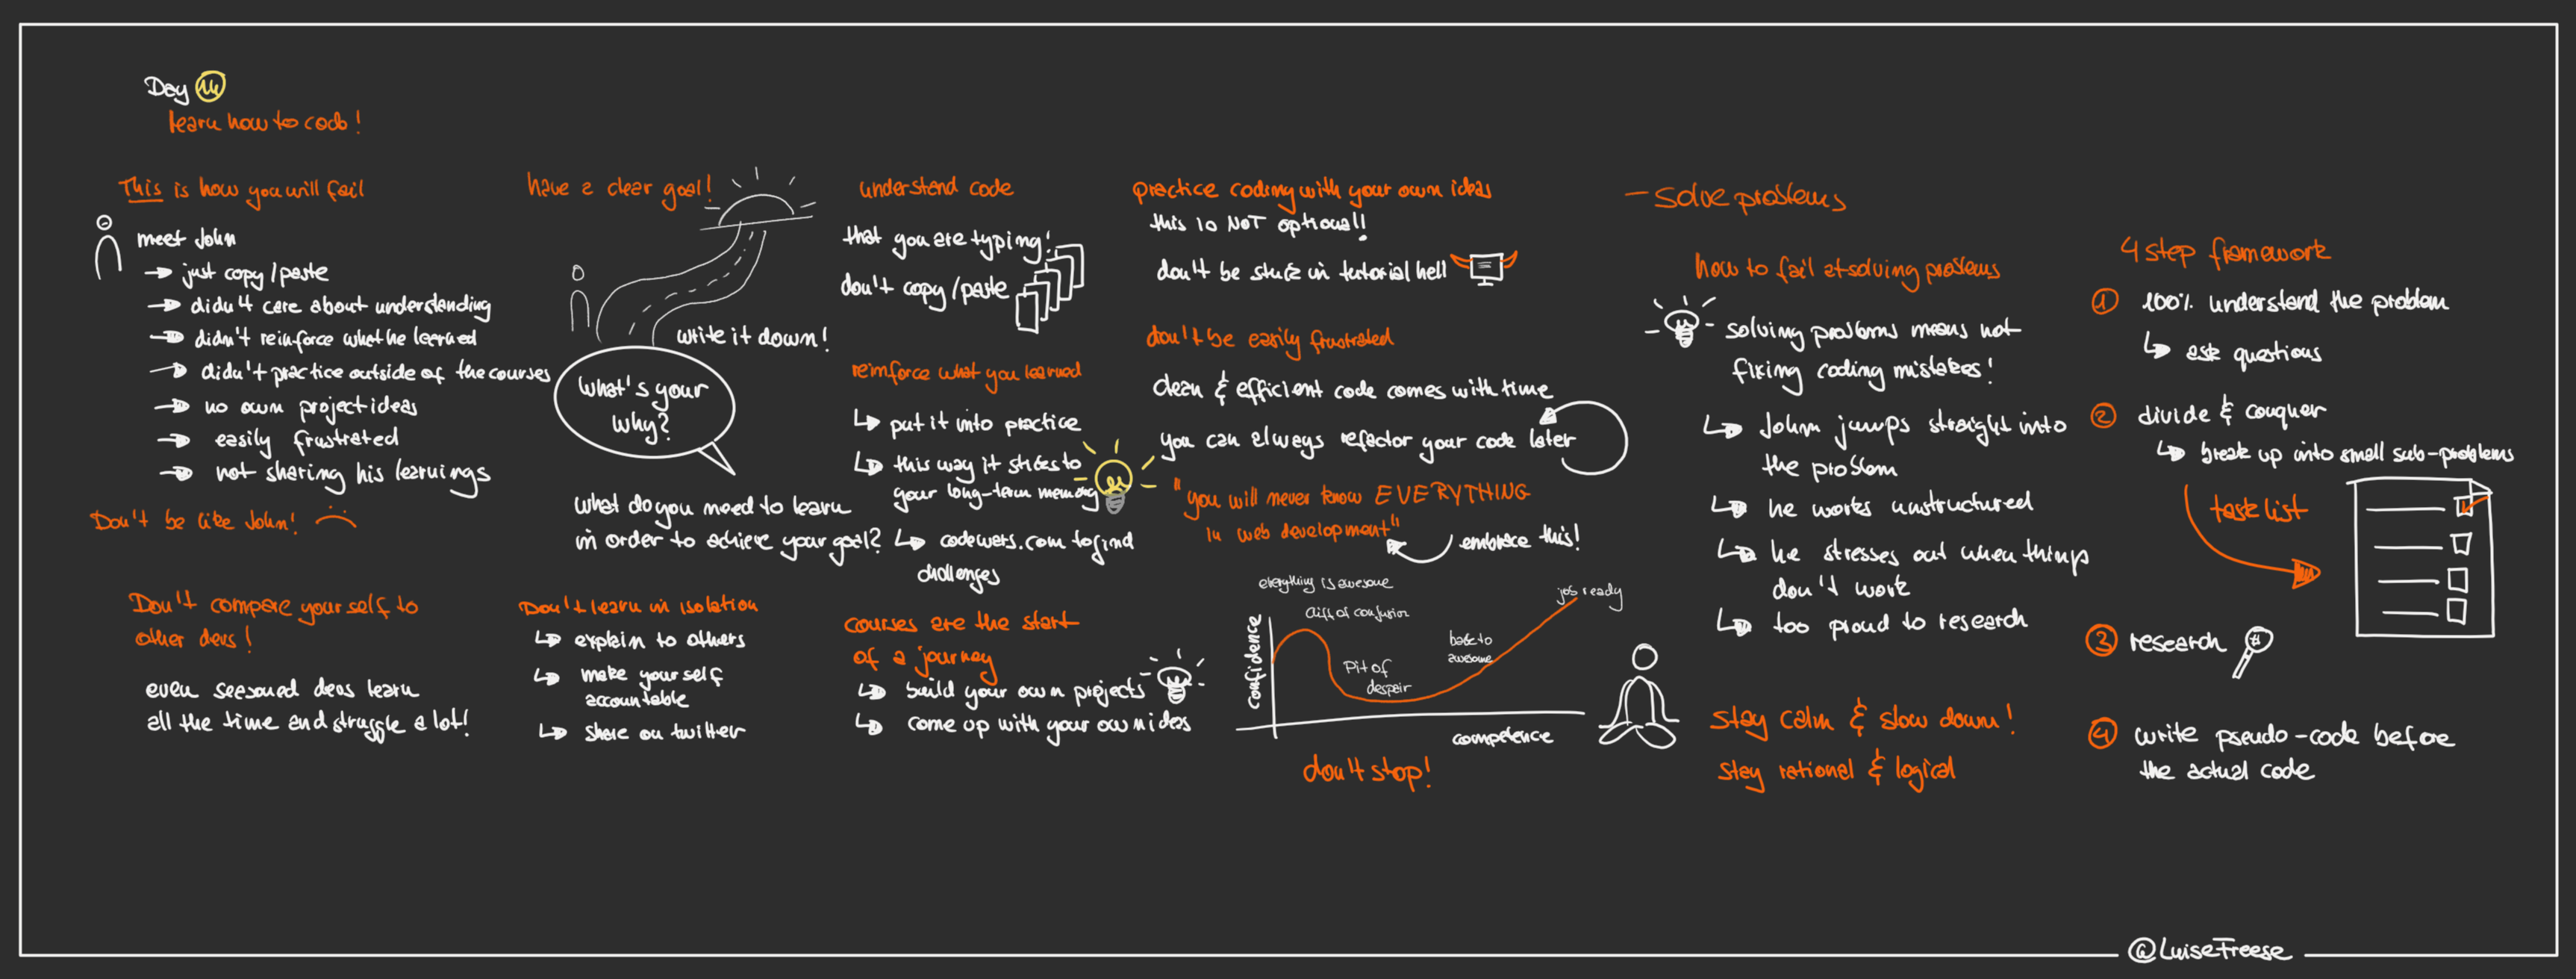 Day 14
learn how to code!
This is how you will fail
meet John
just copy/paste
didn't care about understanding
didn't reinforce what he learned
didn't practice outside of the courses
no own project ideas
easily frustrated
not sharing his learnings
Don't be like John!
Don't compare yourself to
other devs!
even seasoned devs learn
all the time and struggle a lot!
have a clear goal!
write it down!
What's your
why?
what do you need to learn
in order to achieve your goal?
Don't learn in isolation
explain to others
make yourself
accountable
share on twitter
understand code
that you are typing!
don't copy/paste
reinforce what you learned
put it into practice
this way it sticks to
your long-term memory
codewars.com to find
challenges
courses are the start
of a journey
build your own projects
come up with your own ideas
practice coding with your own ideas
this is NOT optional!
don't be stuck in tutorial hell
don't be easily frustrated
clean & efficient code comes with time
you can always refactor your code later
"you will never know EVERYTHING
in web development"
embrace this!
everything is awesome
cliff of confusion
job ready
confidence
Pit of
despair
back to
awesome
competence
don't stop!
- solve problems
how to fail at solving problems
solving problems means not
fixing coding mistakes!
John jumps straight into
the problem
he works unstructured
he stresses out when things
don't work
too proud to research
stay calm & slow down!
stay rational & logical
4 step framework
1 100% understand the problem
ask questions
2 divide & conquer
break up into small sub-problems
task list
3 research
4 write pseudo-code before
the actual code
@LuiseFreese